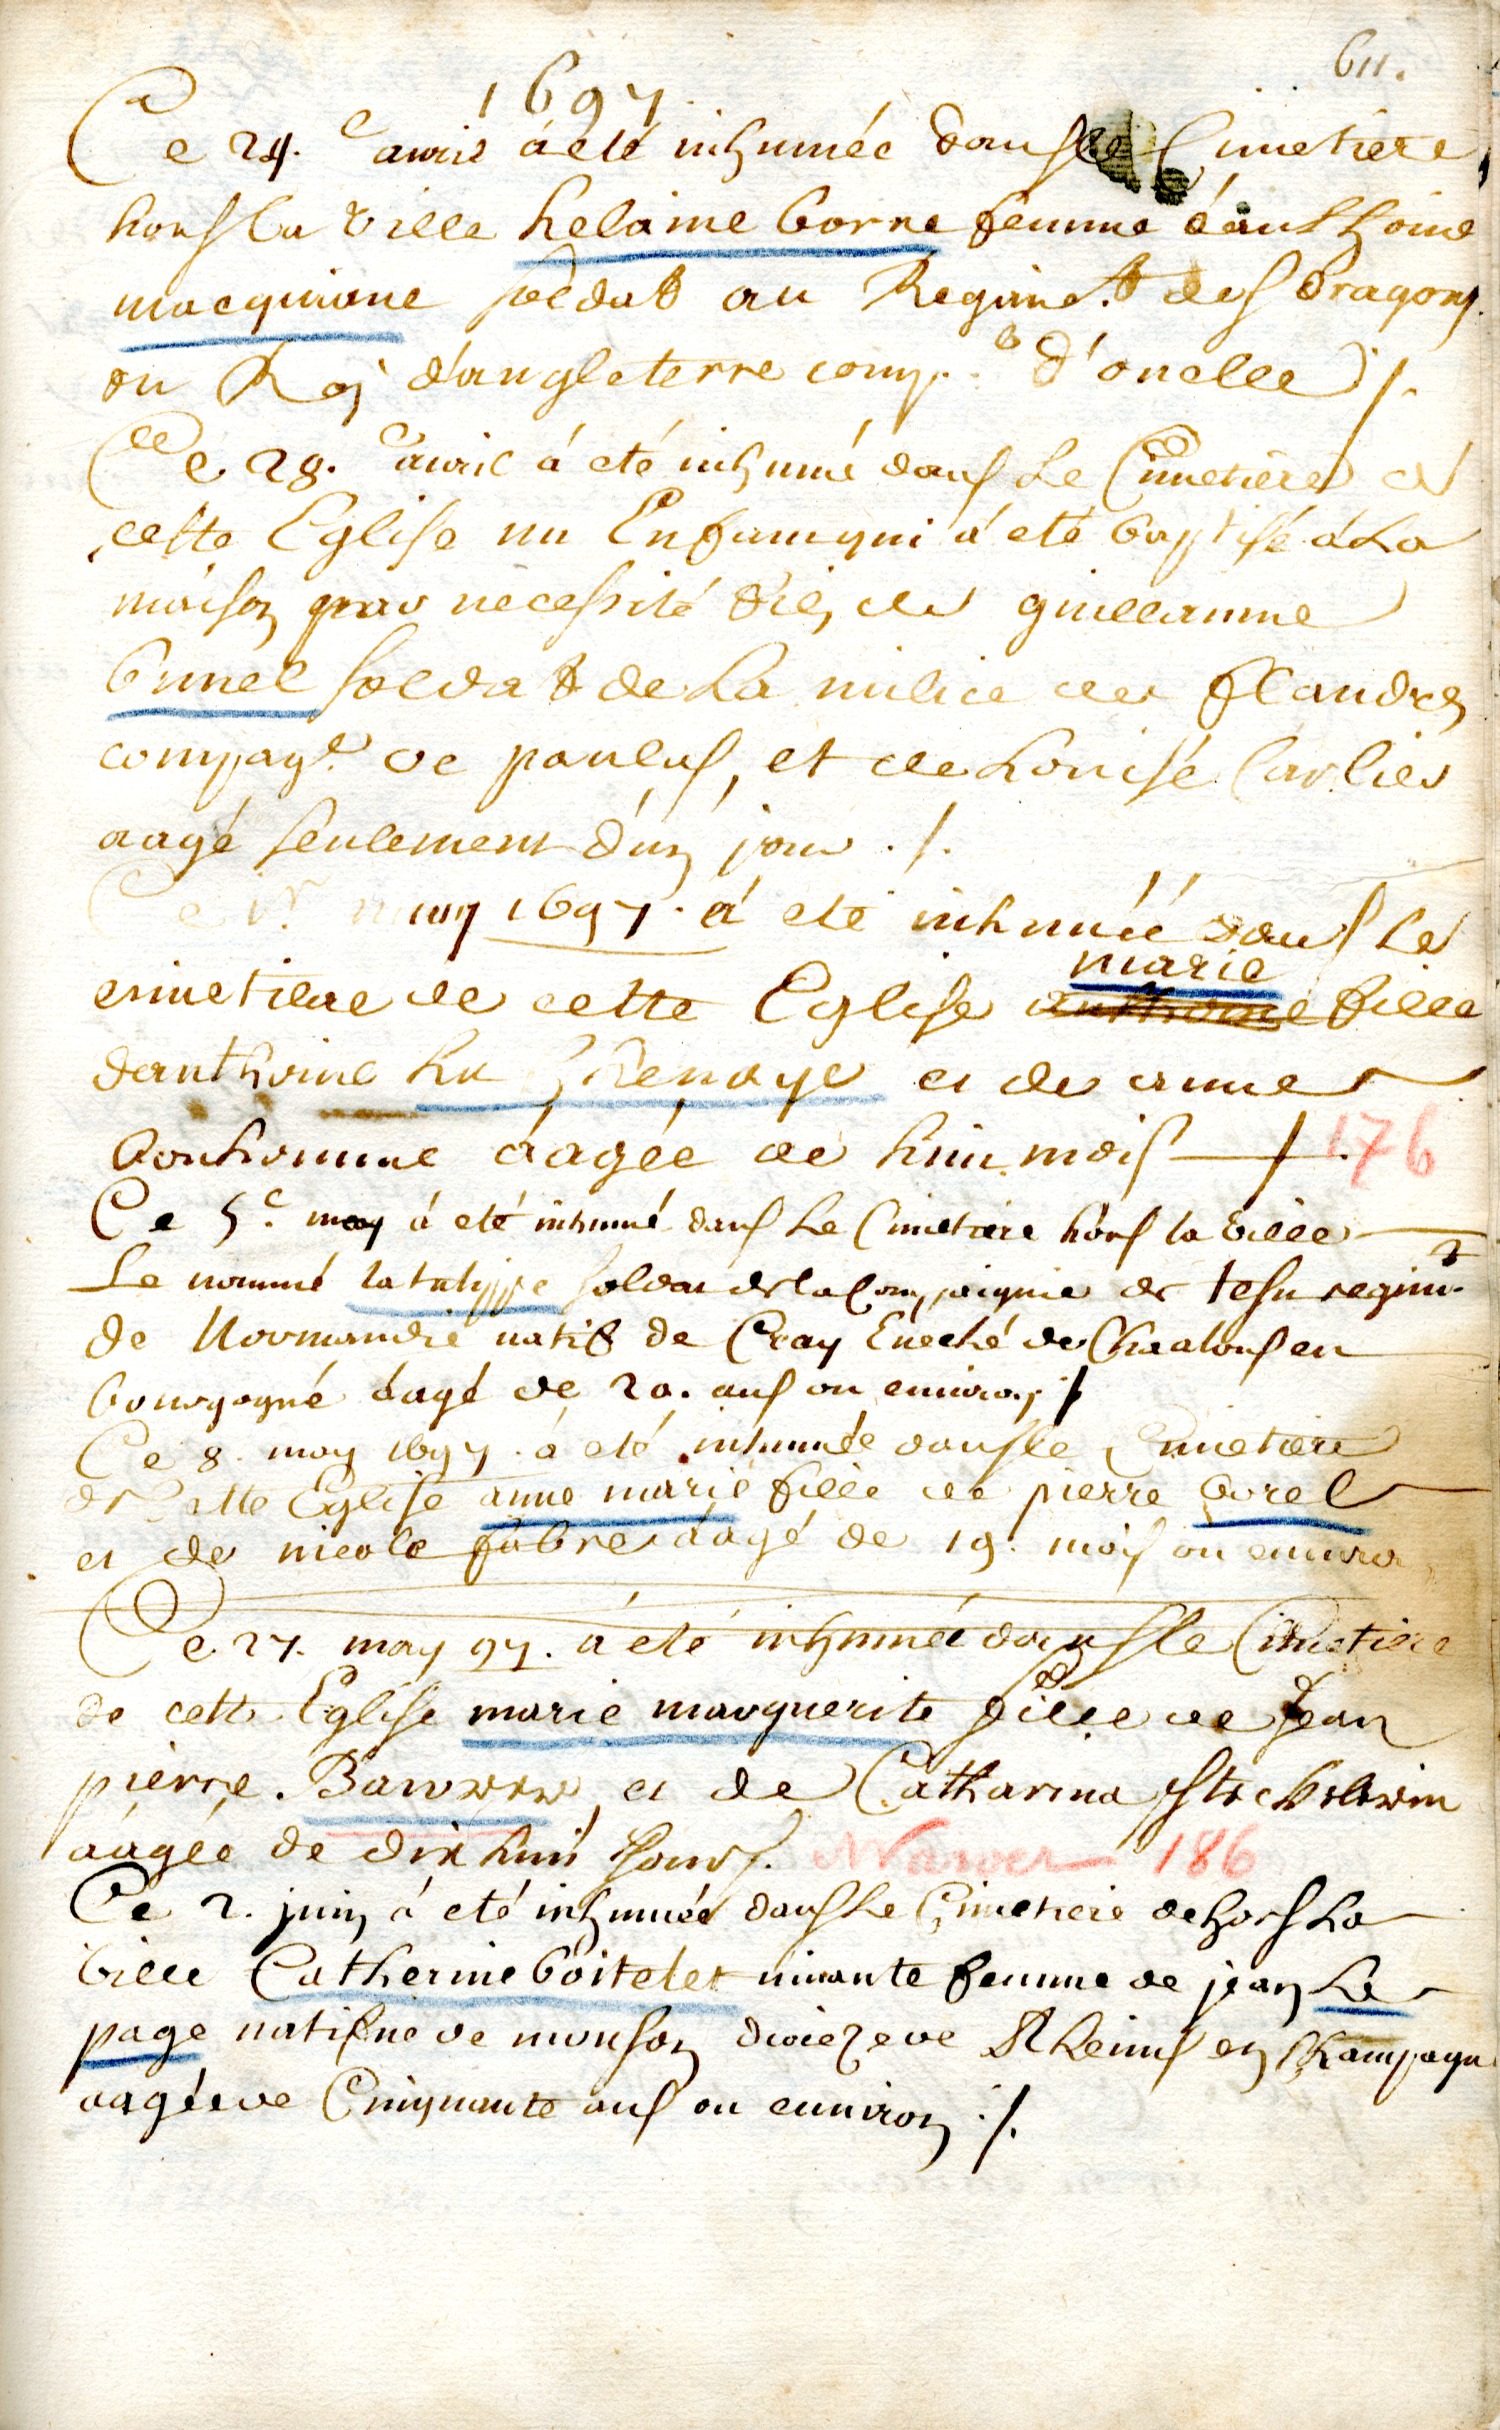 611.
1697
Ce 24.e avril á eté inhumée dans le Cimetiere
hors la ville helaine borne femme d'anthoine
macquione soldat au Regime.t des Dragons
du Roj d'angleterre comp.e d'onelle ./.
Ce 28.e avril á eté inhumé dans Le Cimetiere de
cette Eglise un Enfam qui á eté baptisé á La
maison par necessité fils de guilleaume
bunel soldat de La milice de flandres
compag.e de paulus, et de Louise Carlier
aagé seulement d'un jour ./.
Ce 1.r may 1697. á eté inhumée dans Le
cimetiere de cette Eglise marie fille
danthoine Lu et de anne
bonhomme áagée de huit mois ./. 176
Ce 5.e may á eté inhumé dans Le Cimetiere hors la ville
Le nommé latulippe soldat de la Compaignie de tesu regim.t
de Normandie natif de Cray Eveché de Chaalons en
bourgogne áagé de 20. ans ou environ ./.
Ce 8. may 1697. á eté inhumée dans le Cimetiere
de Cette Eglise anne marie fille de pierre borel
et de nicole fabre áagé de 19. mois ou environ
Ce 27. may 97. á eté inhumée dans le Cimetiere
de cette Eglise marie marguerite fille de Jean
pierre. et de Catharina
áagée de dix huit Jours. 186
Ce 2. juin á eté inhumée dans Le Cimetiere dehors La
ville Catherine boitelet vivante femme de jean Le
page natifne de monson dioceze de Rheims en Champagne
aagée de Cinquante ans ou environ ./.